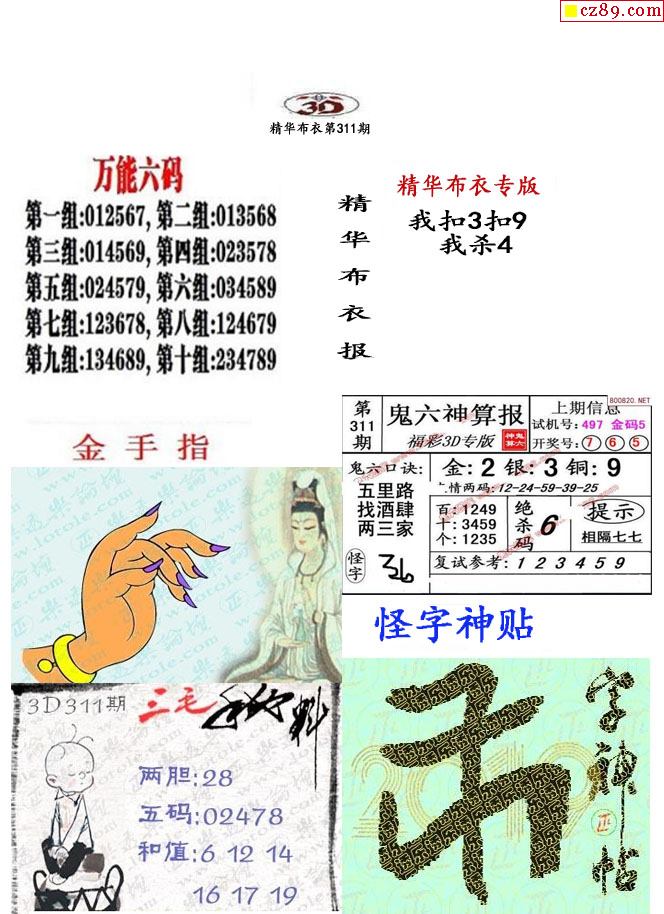 cz89.com
3D
精华布衣第311期
万能六码
第一组:012567,第二组:013568
第三组:014569,第四组:023578
第五组:024579,第六组:034589
第七组:123678,第八组:124679
第九组:134689,第十组:234789
精华布衣报
精华布衣专版
我扣3扣9
我杀4
金手指
800820.NET
第311期
鬼六神算报
福彩3D专版
上期信息
试机号:497 金码5
开奖号:765
鬼六口诀:
五里路
找酒肆
两三家
金:2银:3铜:9
情两码:12-24-59-39-25
百:1249
十:3459
个:1235
绝杀码
6
提示
相隔七七
怪字
复试参考:123459
怪字神贴
3D311期
三毛
两胆:28
五码:02478
和值:6 12 14
16 17 19
2019
字神帖